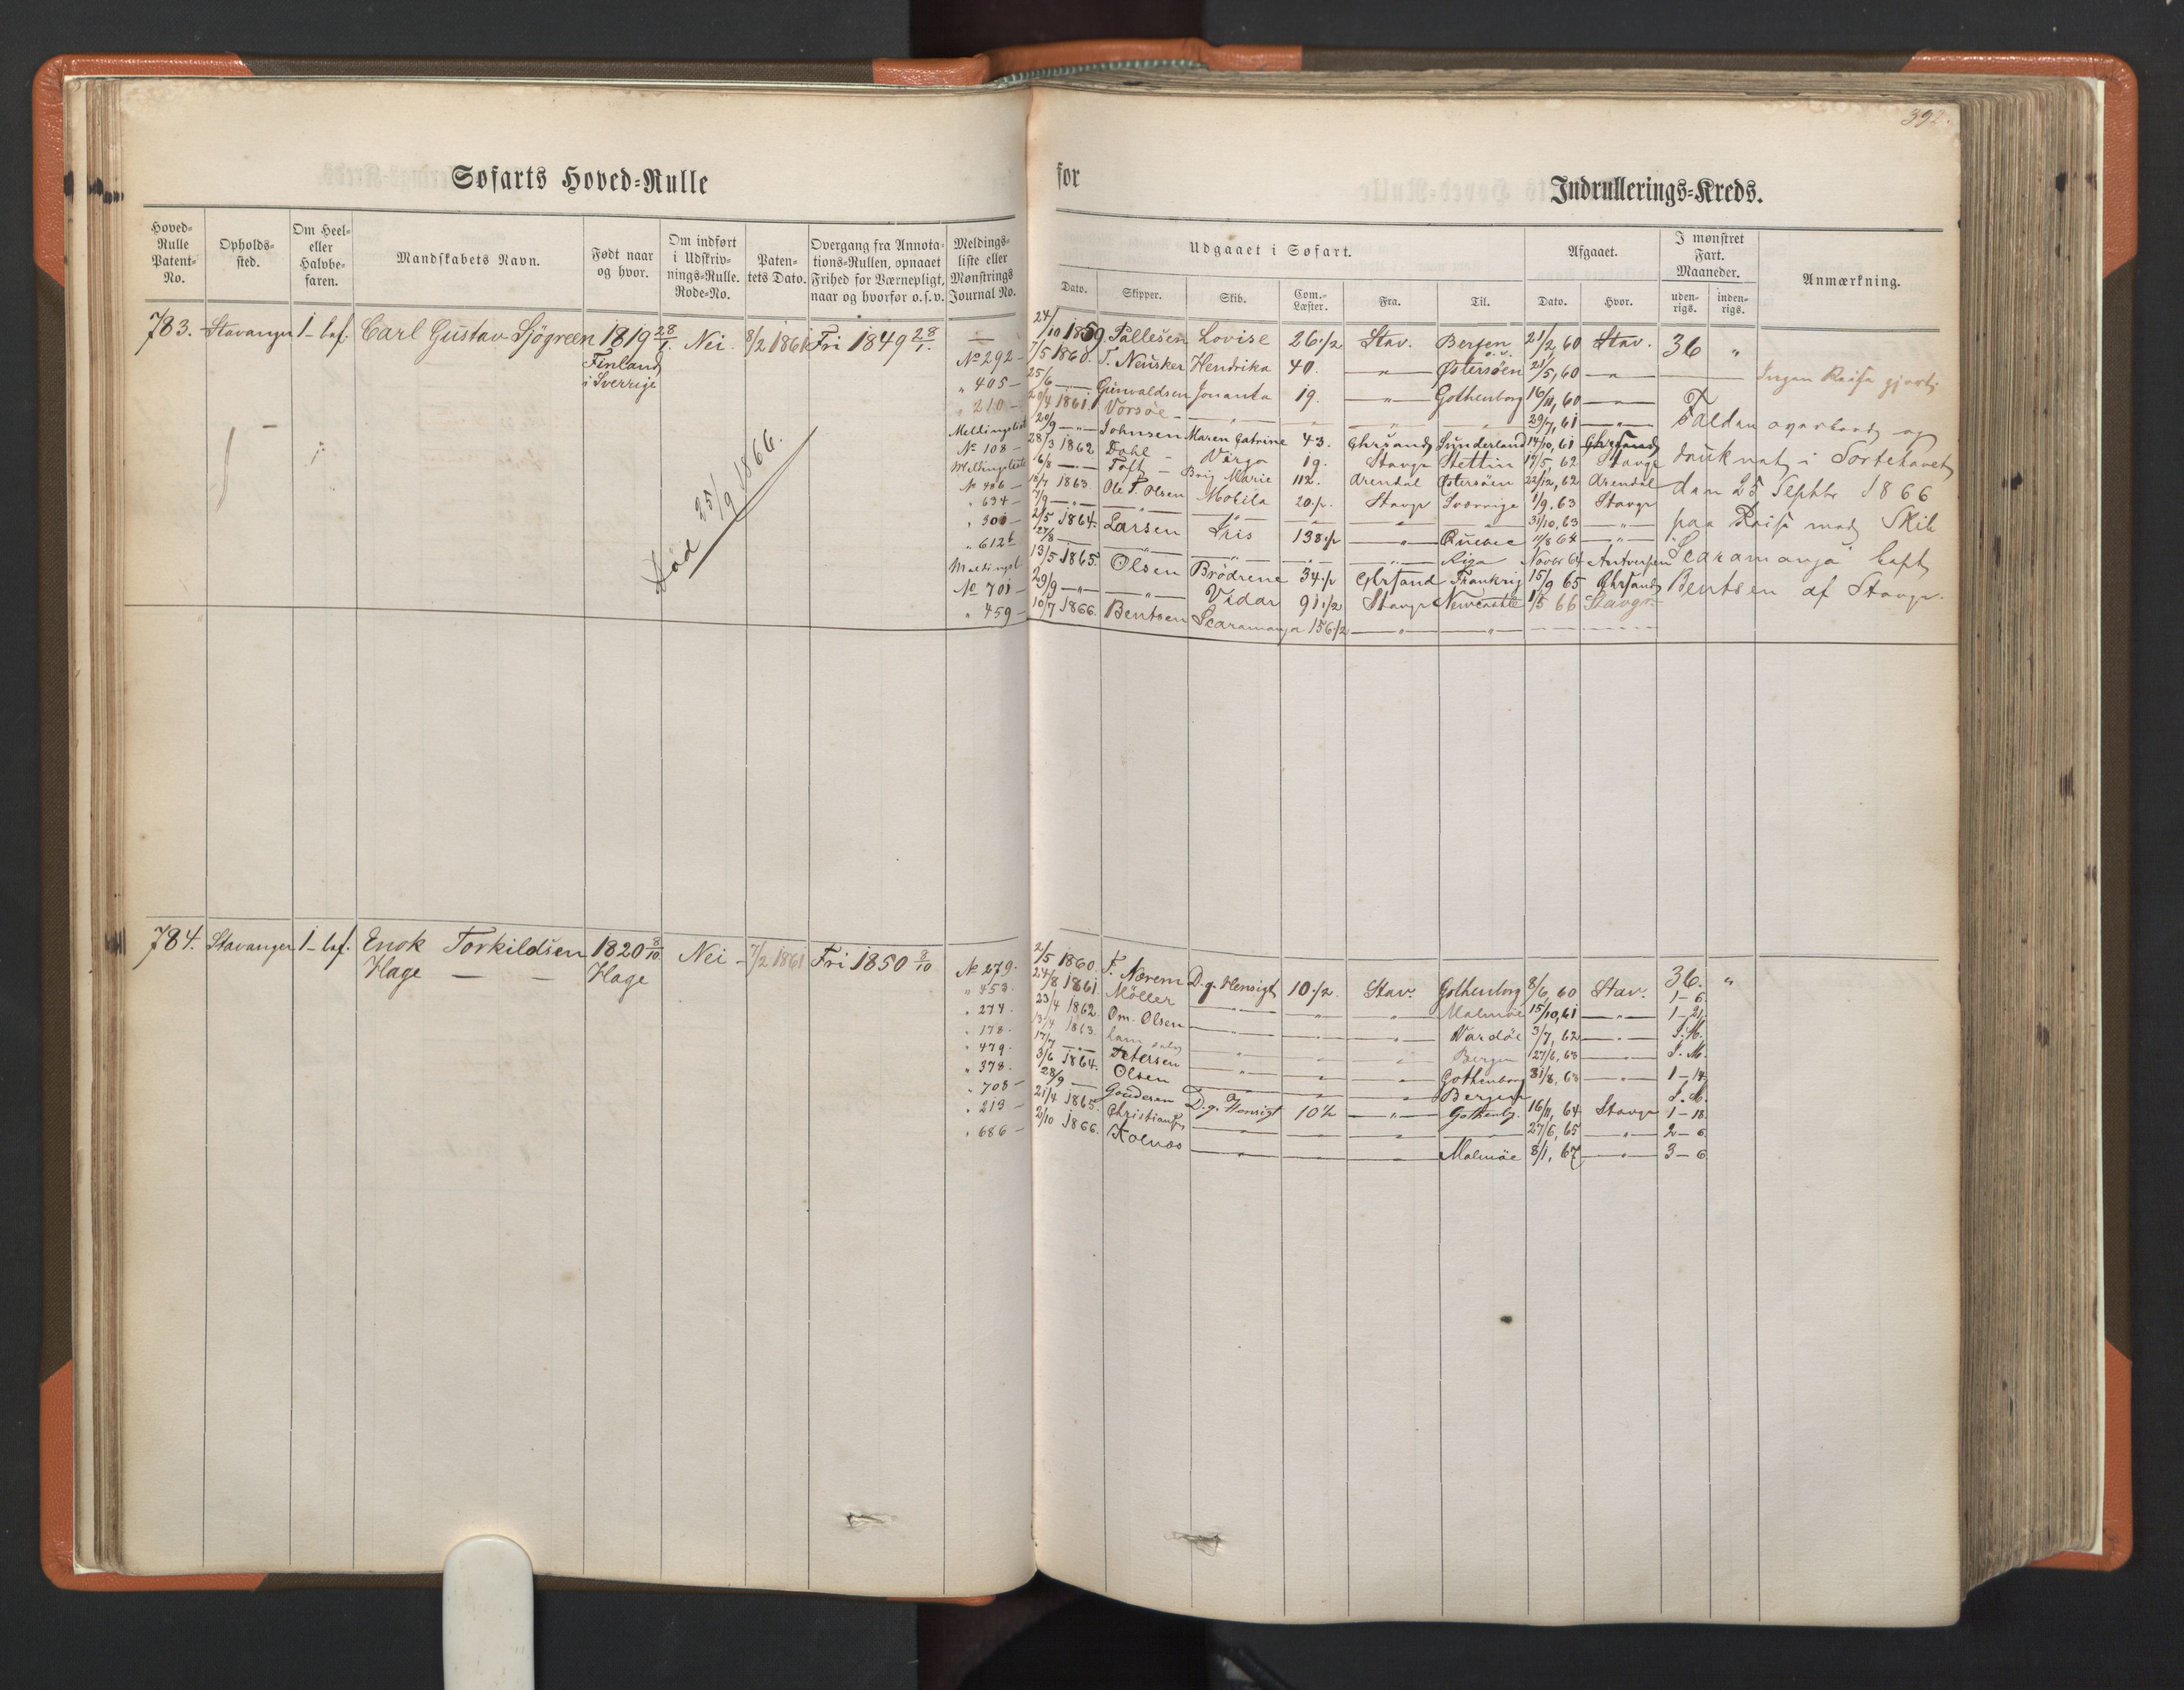 392.
Søfarts Hoved-Rulle
for
Indrullerings-Kreds.
Hoved-Rulle Patent-No.
Opholds-sted.
Om Heel- eller Halvbe-faren.
Mandskabets Navn.
Født naar og hvor.
Om indført i Udskriv-nings-Rulle. Rode-No.
Paten-tets Dato.
Overgang fra Annota-tions-Rullen, opnaaet Frihed for Værnepligt, naar og hvorfor o.s.v.
Meldings-liste eller Mønstrings Journal No.
Udgaaet i Søfart.
Afgaaet.
I mønstret Fart. Maaneder.
Anmærkning.
Dato.
Skipper.
Skib.
Com.-Læster.
Fra.
Til.
Dato.
Hvor.
uden-rigs.
inden-rigs.
783. Stavanger 1 - bef. Carl Gustav Sjögreen 1819 28/1. Nei 8/2 1861 Fri 1849 28/1.
Finland
i Sverrige
Død 25/9 1866.
— 24/10 1859 Pallesen Lovise 26 1/2 Stav. Bergen 21/2, 60 Stav. 36 "
No 292 - 7/5 1860. T. Neusker Hendrika 40. — " — Østersøen 21/5, 60 — " —
" 405 - 25/6 — Gunvaldsen Jonanta 19. — " — Gothenborg 16/11, 60 — " —
" 210 - 20/4 1861. Vorsöe - — " — 29/7, 61 — " —
Meldingslist 20/9 — " — Johnsen Maren Catrine 43. Chrsand Sunderland 14/10, 61 Chrsand
No 108 - 28/3 1862 Dahl - Virgo 19. Stavgr Stettin 17/5, 62 Stavgr
Meldingsliste 6/8 — " — Toft - Brig Marie 112. Arendal Østersøen 22/12, 62 Arendal
No 486 - 18/7 1863 Ole P. Olsen Mobila 20 1/2 Stavgr Sverrige 1/9. 63 Stavgr
" 634 - 7/9 — " — — " — — " — 31/10, 63 — " —
" 300 - 2/5 1864. Larsen Iris 138 1/2 — " — Quebec 11/8 64 — " —
" 612 b 27/8 — " — — " — Riga Novbr 64 Antverpen
Meldingsl. 13/5 1865. Olsen Brödrene 34 1/2 Chrsand Frankrig 15/9 65 Chrsand
No 701 - 29/9 — " — — " — Vidar 91 1/2 Stavgr Newcastle 1/5 66 Stavgr
" 459 - 10/7 1866. Bentsen Scaramanga 156 1/2 — " — — " —
Ingen Reise gjort.
Falden overbord og
druknet i Sortehavet
den 25 Septbr 1866
paa Reise med Skib
Scaramanga Capt
Bentsen af Stavgr.
784. Stavanger 1 - bef. Enok Torkildsen 1820 8/10 Nei - 7/2 1861 Fri 1850 8/10
Hage — — Hage
No 279. 2/5 1860. T. Nærem D. g. Hensigt 10 1/2. Stav. Gothenborg 8/6, 60 Stav. 36. "
" 453. 24/8 1861 Möller — " — Malmöe 15/10, 61 — " — 1 - 6
" 274. 23/4 1862 Om. Olsen — " — Vardöe 3/7, 62 — " — 1 - 21
" 178. 13/4 1863. — " — Bergen 27/6, 63 — " — I. M.
" 479. 17/7 — " — Petersen — " — Gothenborg 31/8, 63 — " — I. M.
" 378. 3/6 1864. Olsen — " — Bergen 1 - 14
" 708 - 28/9 — D. g. Hensigt 10 1/2 — " — Gothenbg. 16/11, 64 Stavgr 1 - 18
" 213 - 21/4 1865. — " — 27/6, 65 — " — 2 - 6
" 686 - 2/10 1866. Kolnæs — " — Malmöe 8/1, 67 — " — 3 - 6